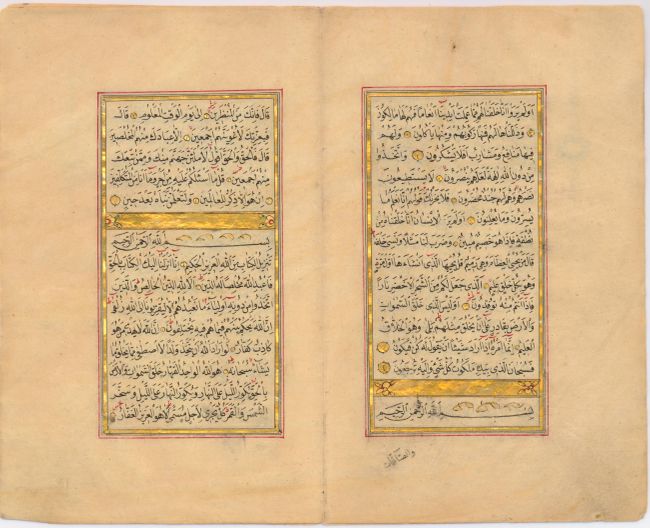 اولم يروا انا خلقنا لهم مما عملت ايدينا انعاما فهم لها مالكون
وذللناها لهم فمنها ركوبهم ومنها ياكلون ولهم
فيها منافع ومشارب افلا يشكرون واتخذوا
من دون الله الهة لعلهم ينصرون لا يستطيعون
نصرهم وهم لهم جند محضرون فلا يحزنك قولهم انا نعلم ما
يسرون وما يعلنون اولم ير الانسان انا خلقناه من
نطفة فاذا هو خصيم مبين وضرب لنا مثلا ونسي خلقه
قال من يحيي العظام وهي رميم قل يحييها الذي انشاها اول مرة
وهو بكل خلق عليم الذي جعل لكم من الشجر الاخضر نارا
فاذا انتم منه توقدون اوليس الذي خلق السموات
والارض بقادر على ان يخلق مثلهم بلى وهو الخلاق
العليم انما امره اذا اراد شيئا ان يقول له كن فيكون
فسبحان الذي بيده ملكوت كل شيء واليه ترجعون
بسم الله الرحمن الرحيم
والصافات
قال فانك من المنظرين الى يوم الوقت المعلوم قال
فبعزتك لاغوينهم اجمعين الا عبادك منهم المخلصين
قال فالحق والحق اقول لاملئن جهنم منك وممن تبعك
منهم اجمعين قل ما اسئلكم عليه من اجر وما انا من المتكلفين
ان هو الا ذكر للعالمين ولتعلمن نباه بعد حين
بسم الله الرحمن الرحيم
تنزيل الكتاب من الله العزيز الحكيم انا انزلنا اليك الكتاب بالحق
فاعبد الله مخلصا له الدين الا لله الدين الخالص والذين
اتخذوا من دونه اولياء ما نعبدهم الا ليقربونا الى الله زلفى
ان الله يحكم بينهم فيما هم فيه يختلفون ان الله لا يهدي من هو
كاذب كفار لو اراد الله ان يتخذ ولدا لاصطفى مما يخلق ما
يشاء سبحانه هو الله الواحد القهار خلق السموات والارض
بالحق يكور الليل على النهار ويكور النهار على الليل وسخر
الشمس والقمر كل يجري لاجل مسمى الا هو العزيز الغفار